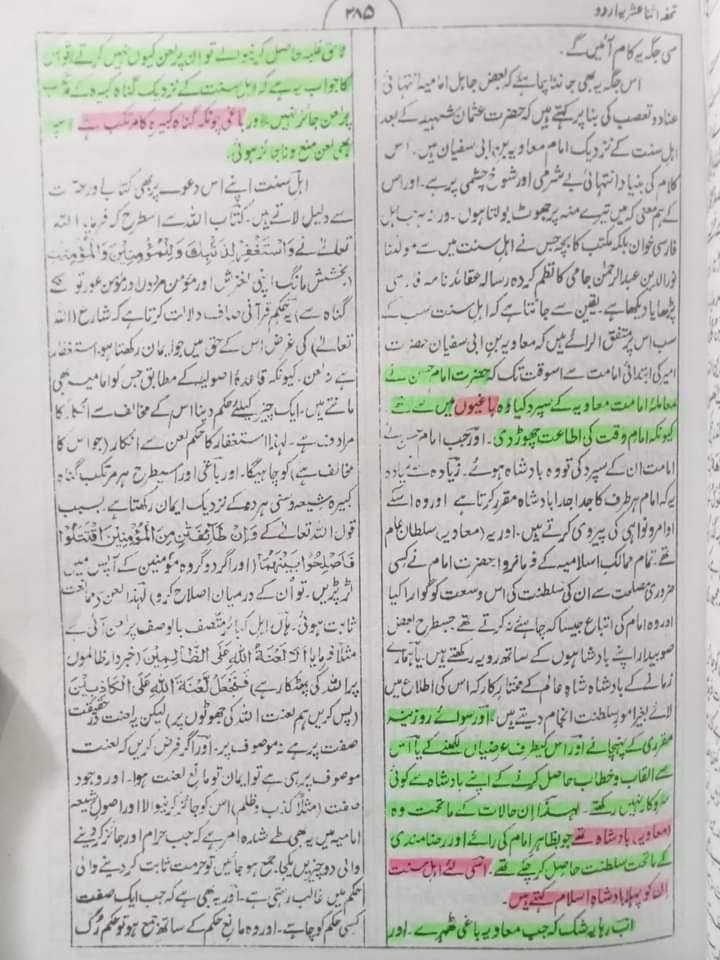 تحفہ اثنا عشریہ اردو
۳۸۵
سی جگہ یہ کام آئیں گے۔
اس جگہ یہ بھی جاننا چاہئے کہ بعض جاہل امامیہ انتہائی
عناد و تعصب کی بنا پر کہتے ہیں کہ حضرت عثمان شہید کے بعد
اہل سنت کے نزدیک امام معاویہ بن ابی سفیان ہیں۔ اس
کلام کی بنیاد انتہائی بے شرمی اور شوخ چشمی پر ہے۔ اور اس
کے ہم معنی کہ میں تیرے منہ پر جھوٹ بولتا ہوں۔ ورنہ ہر جاہل
فارسی خوان بلکہ مکتب کا بچہ جس نے اہل سنت میں سے مولٰنا
نورالدین عبدالرحمٰن جامی کا نظم کردہ رسالہ عقائد نامہ فارسی
پڑھایا دیکھا ہے۔ یقین سے جانتا ہے کہ اہل سنت سب کے
سب اس پر متفق الرائے ہیں کہ معاویہ بن ابی سفیان حضرت
امیر کی ابتدائی امامت سے اسوقت تک کہ حضرت امام حسن نے
معاملہ امامت معاویہ کے سپرد کیا وہ باغیوں میں سے تھے
کیونکہ امام وقت کی اطاعت چھوڑ دی۔ اور جب امام حسن نے
امامت ان کے سپرد کی تو وہ بادشاہ ہوئے۔ زیادہ سے زیادہ
یہ کہ امام ہر طرف کا جدا جدا بادشاہ مقرر کرتا ہے اور وہ اسکے
اوامر و نواہی کی پیروی کرتے ہیں۔ اور یہ (معاویہ) سلطان عام
تھے۔ تمام ممالک اسلامیہ کے فرمانروا حضرت امام نے کسی
ضروری مصلحت سے ان کی سلطنت کی اس وسعت کو گوارا کیا
اور وہ امام کی اتباع جیسا کہ چاہئے نہ کرتے تھے جسطرح بعض
صوبیدار اپنے بادشاہوں کے ساتھ رویہ رکھتے ہیں۔ یا ہمارے
زمانے کے بادشاہ شاہ عالم کے مختار کار کہ اس کی اطلاع میں
لائے بغیر امور سلطنت انجام دیتے ہیں۔ اور سوائے روزینہ
مقرری کے پہنچانے اور اس کیطرف عرضیاں لکھنے کے یا اس
سے القاب و خطاب حاصل کرنے کے اپنے بادشاہ سے کوئی
سروکار نہیں رکھتے۔ لہٰذا ان حالات کے ماتحت وہ
(معاویہ) بادشاہ تھے جو بظاہر امام کی رائے اور رضامندی
کے ماتحت سلطنت حاصل کر چکے تھے۔ اسی لئے اہل سنت
ان کو پہلا بادشاہ اسلام کہتے ہیں۔
اب رہا یہ شک کہ جب معاویہ باغی ٹھہرے۔ اور
ناحق غلبہ حاصل کرنیوالے تو ان پر لعن کیوں نہیں کرتے تو اس
کا جواب یہ ہے کہ اہل سنت کے نزدیک گناہ کبیرہ کے مرتکب
پر لعن جائز نہیں۔ اور باغی چونکہ گناہ کبیرہ کا مرتکب ہے اسپر
بھی لعن منع و ناجائز ہوئی۔
اہل سنت اپنے اس دعوے پر بھی کتاب اور حدیث
سے دلیل لاتے ہیں۔ کتاب اللہ سے اسطرح کہ فرمایا اللہ
تعالےٰ نے وَاسْتَغْفِرْ لِذَنْبِكَ وَلِلْمُؤْمِنِيْنَ وَالْمُؤْمِنٰتِ
(بخشش مانگ اپنی لغزش اور مؤمن مردوں اور مؤمن عورتوں کے
گناہ سے) یہ حکم قرآنی صاف دلالت کرتا ہے کہ شارع (اللہ
تعالےٰ) کی غرض اس کے حق میں جو ایمان رکھتا ہو۔ استغفار
ہے نہ لعن۔ کیونکہ قاعدہ اصولیہ کے مطابق جس کو امامیہ بھی
مانتے ہیں۔ ایک چیز کیلئے حکم دینا اس کے مخالف سے انکار کا
مرادف ہے۔ لہٰذا استغفار کا حکم لعن سے انکار (جو اس کا
مخالف ہے) کو چاہیگا۔ اور باغی اور اسیطرح ہر مرتکب گناہ
کبیرہ شیعہ و سنی ہر دو کے نزدیک ایمان رکھتا ہے۔ بسبب
قول اللہ تعالےٰ کے وَاِنْ طَآئِفَتٰنِ مِنَ الْمُؤْمِنِيْنَ اقْتَتَلُوْا
فَاَصْلِحُوْا بَيْنَهُمَا (اور اگر دو گروہ مؤمنین کے آپس میں
لڑ پڑیں۔ تو اُن کے درمیان اصلاح کرو) لہٰذا لعن کی ممانعت
ثابت ہوئی۔ ہاں اہل کبائر متصف بالوصف پر لعن آئی ہے
مثلاً فرمایا اَلَا لَعْنَةُ اللهِ عَلَى الظّٰلِمِيْنَ (خبردار ظالموں
پر اللہ کی پھٹکار ہے) فَنَجْعَلْ لَعْنَةَ اللهِ عَلَى الْكَاذِبِيْنَ
(پس کریں ہم لعنت اللہ کی جھوٹوں پر) لیکن یہ لعنت درحقیقت
صفت پر ہے نہ موصوف پر۔ اور اگر فرض کریں کہ لعنت
موصوف پر ہی ہے تو ایمان تو مانع لعنت ہوا۔ اور وجود
صفت (مثلاً کذب و ظلم) اس کو جائز کرنیوالا اور اصول شیعہ
امامیہ میں یہ بھی طے شدہ امر ہے کہ جب حرام اور جائز کر دینے
والی دو چیزیں یکجا جمع ہو جائیں تو حرمت ثابت کر دینے والی
حکم میں غالب رہتی ہے۔ اور یہ بھی ہے کہ جب ایک صفت
کسی حکم کو چاہے۔ اور وہ مانع حکم کے ساتھ جمع ہو تو حکم رُک